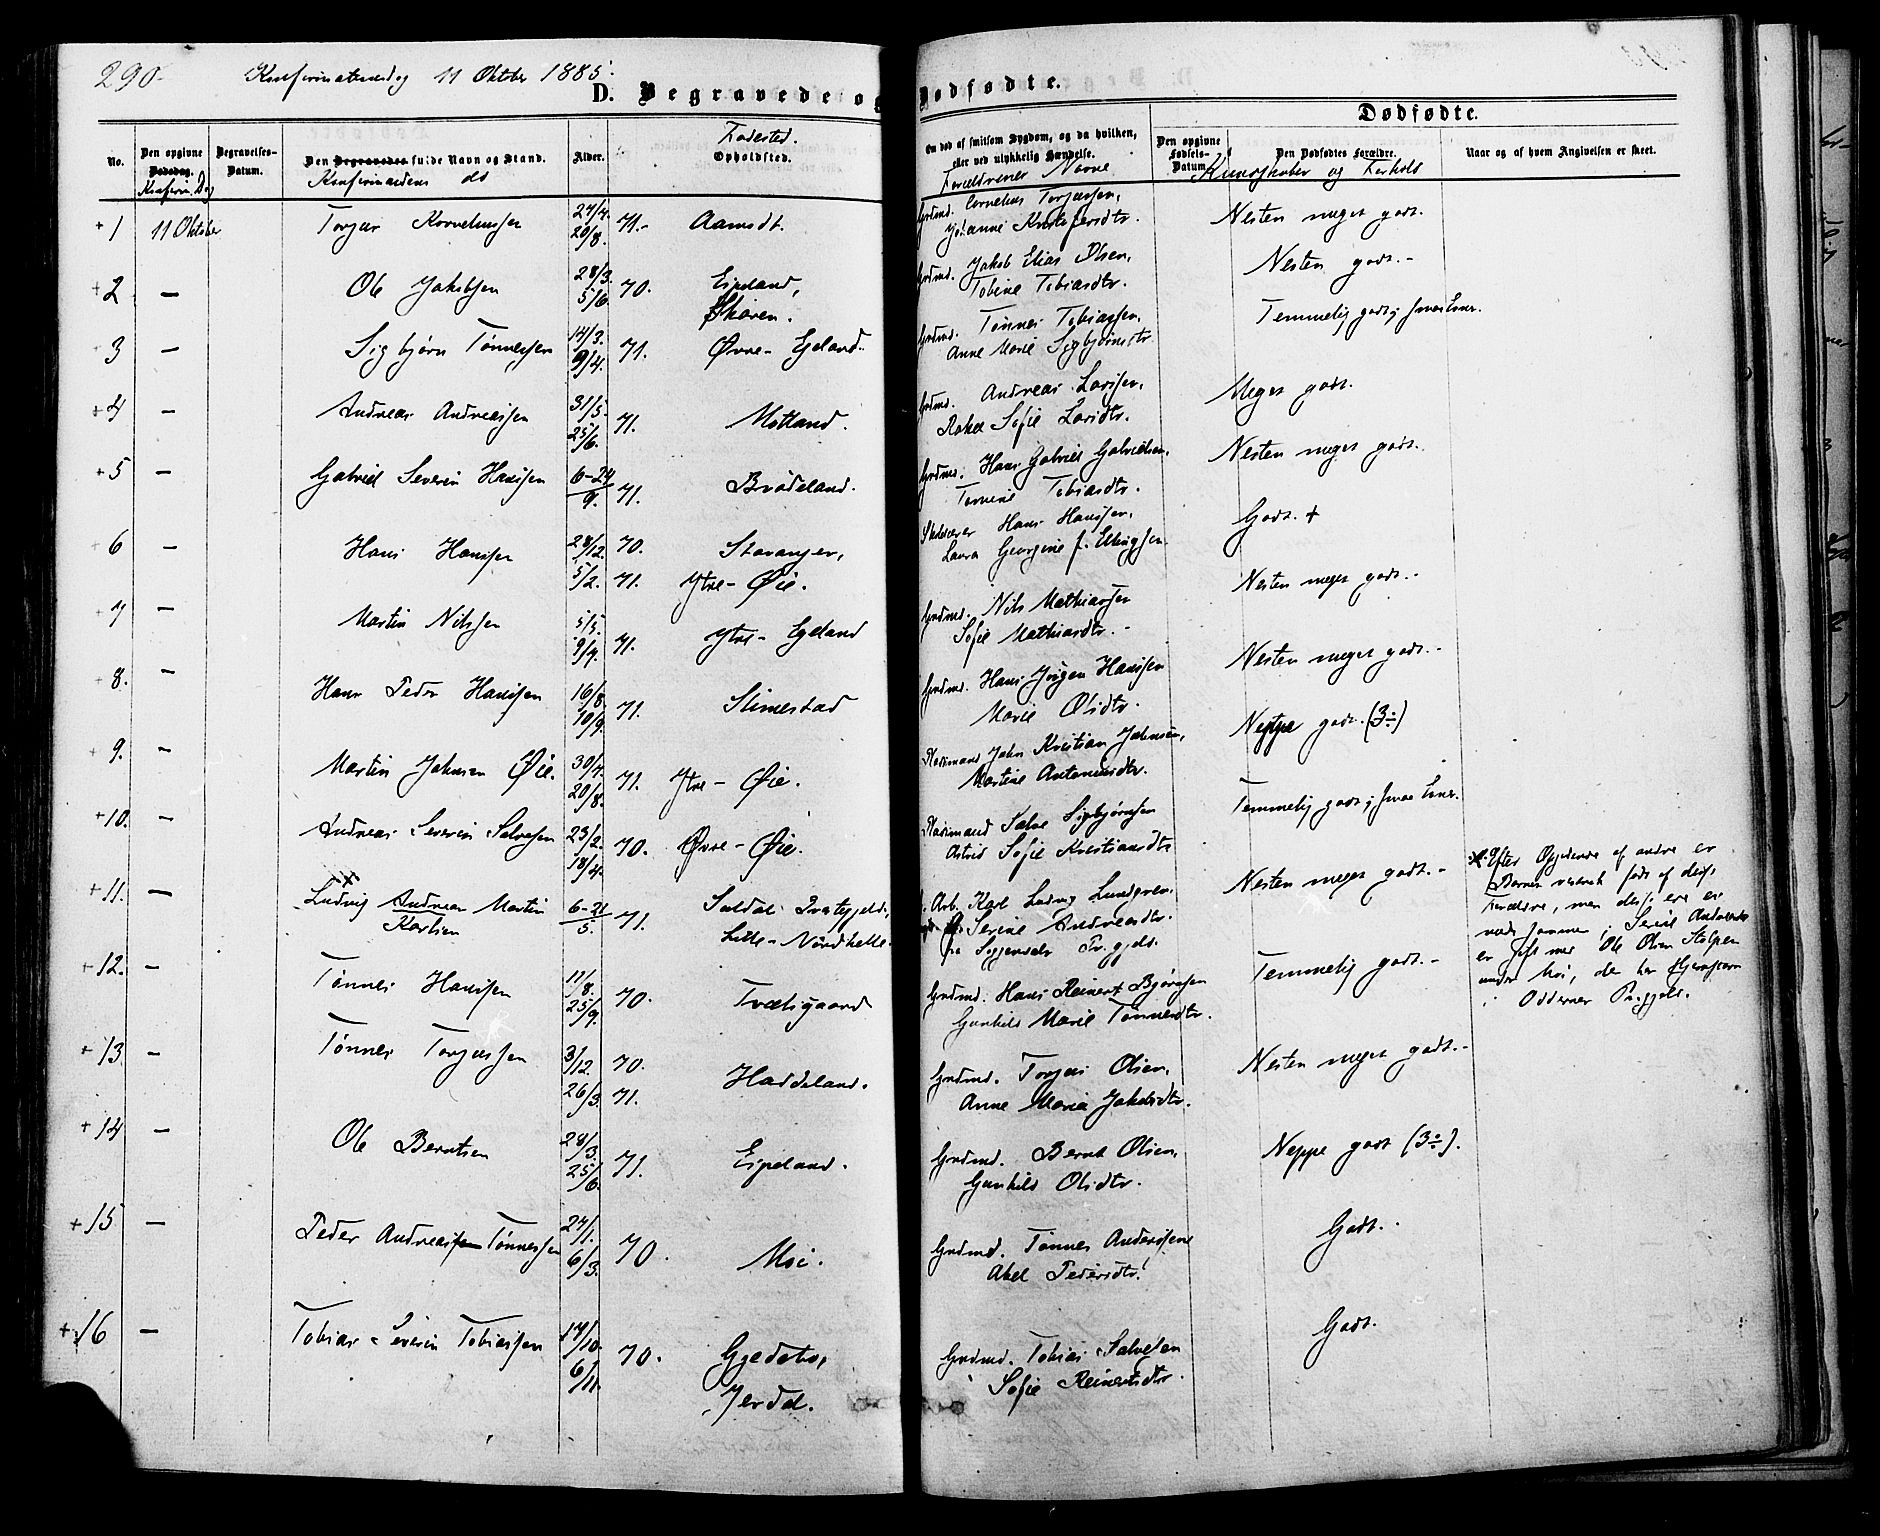 290. Konfirmationsdag 11 Oktober 1885.
D. Begravede og Dødfødte.
Dødfødte.
No. | Den opgivne Dødsdag. Konfirm. Dag | Begravelses-Datum. | Den Begravedes fulde Navn og Stand. Konfirmandens do | Alder. | Fødested. Opholdsted. | En død af smitsom Sygdom, og da hvilken, eller ved ulykkelig Hændelse. Forældrenes Navne | Den opgivne Fødsels-Datum. | Den Dødfødtes Forældre. Kundskaber og Forhold | Naar og af hvem Angivelsen er skeet.
+ 1 11 Oktober Torjus Korneliussen 24/4. 20/8. 71.- Aamodt. Grdmd. Cornelius Torjussen, Johanne Kristofersdtr. Nesten meget godt.
+ 2 — Ole Jakobsen 28/3. 5/6. 70. Eipeland, Skaren. Grdmd. Jakob Elias Olsen, Tobine Tobiasdtr. Nesten godt.-
+ 3 — Sigbjørn Tønnessen 14/3. 9/4. 71. Øvre-Egeland. Grdmd. Tønnes Tobiassen, Anne Marie Sigbjørnsdtr. Temmelig godt; smaa Evner.
+ 4 — Andreas Andreassen 31/5. 25/6. 71. Motland. Grdmd. Andreas Larssen, Rakel Sofie Larsdtr. Meget godt.
+ 5 — Gabriel Severin Hanssen 6-24/9. 71. Brådeland. Grdmd. Hans Gabriel Gabrielsen, Tomine Tobiasdtr. Nesten meget godt.
+ 6 — Hans Hanssen 28/12. 70. 5/2. 71. Stavanger, Ytre-Øie. Hans Hanssen, Laura Georgine f. Ellingsen Godt. +
+ 7 — Martin Nilssen 5/5. 9/7. 71. Ytre-Egeland Grdmd. Nils Mathiassen Sofie Mathiasdtr.- Nesten meget godt.-
+ 8. — Hans Peder Hanssen 16/8. 10/9. 71. Stimestad Grdmd. Hans Jørgen Hanssen Marie Olsdtr. Nesten meget godt.-
+ 9. — Martin Johnsen Øie. 30/4. 20/8. 71. Ytre-Øie. Husmand John Kristian Johnsen, Martine Antonusdtr. Neppe godt. (3÷)
+ 10. — Andreas Severin Salvesen 23/2. 18/4. 70. Øvre-Øie. Husmand Salve Sigbjørnsen Astrid Sofie Kristiansdtr Temmelig godt; smaa Evner.
+ 11. — Ludvig Andreas Martin Karlsen 6-21/5. 71. Suldal, Lille-Nordhelle. Arb. Karl Ludvig Lundgren, Serine Andreasdtr. fra Soggendals Pr.gjeld. Nesten meget godt.-
Efter Opgivende af andre er Barnet født af disse Forældre, men disse ere er ; Serine Andreasdtr er gift med Ole Olsen Stolpen under Moi, der har i Oddernes Pr.gjeld.
+ 12. — Tønnes Hanssen 11/8. 25/9. 70. Tvedtsgaard Grdmd. Hans Reinert Bjørnsen Gunhild Marie Tønnesdtr. Temmelig godt.-
+ 13 — Tønnes Torjussen 3/12. 70. 26/3. 71. Haddeland. Grdmd. Torjus Olsen, Anne Marie Jakobsdtr. Nesten meget godt.-
+ 14 — Ole Berntsen 28/3. 25/6. 71. Eipeland. Grdmd. Bernt Olsen, Gunhild Olsdtr. Neppe godt (3÷).
+ 15 — Peder Andreas Tønnessen 24/1. 6/3. 70. Moi. Grdmd. Tønnes Anderssen Abel Pedersdtr. Godt.
+ 16 — Tobias Severin Tobiassen 17/10. 6/11. 70. Gyedebo, Jerdal. Grdmd. Tobias Salvesen Sofie Reinertsdtr. Godt.